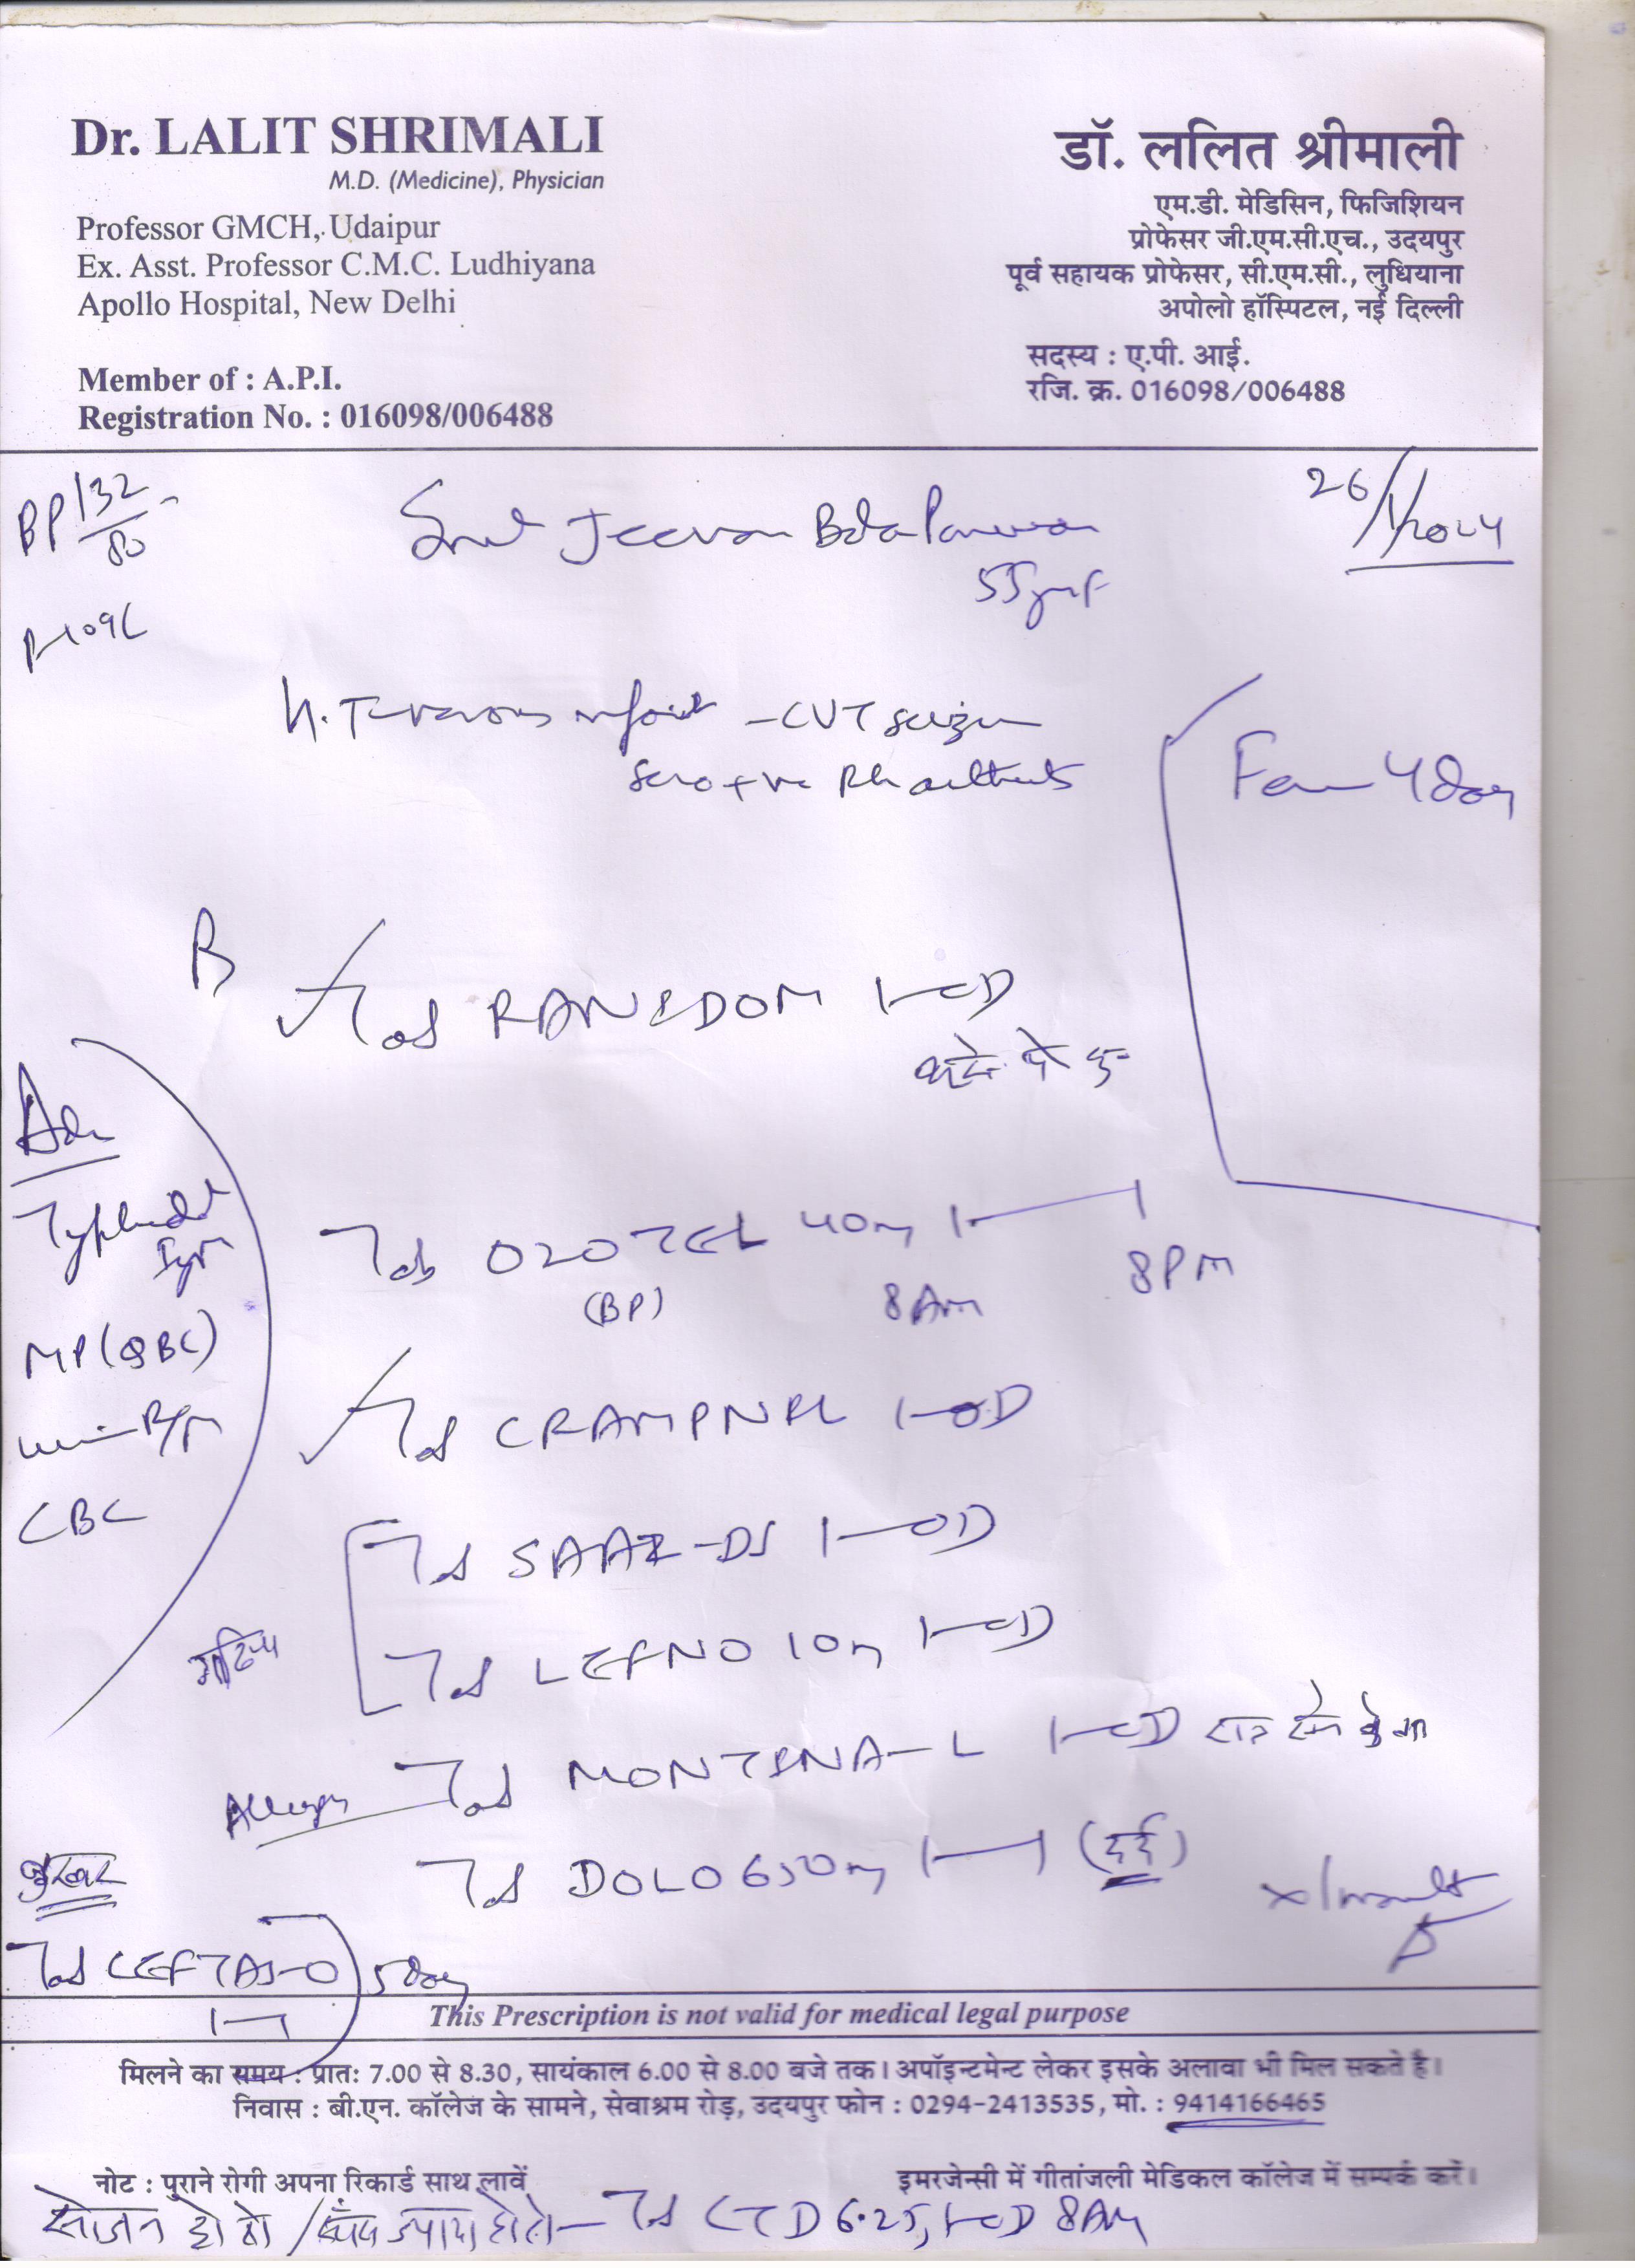 Dr. LALIT SHRIMALI
M.D. (Medicine), Physician
Professor GMCH, Udaipur
Ex. Asst. Professor C.M.C. Ludhiyana
Apollo Hospital, New Delhi
Member of : A.P.I.
Registration No. : 016098/006488
डॉ. ललित श्रीमाली
एम.डी. मेडिसिन, फिजिशियन
प्रोफेसर जी.एम.सी.एच., उदयपुर
पूर्व सहायक प्रोफेसर, सी.एम.सी., लुधियाना
अपोलो हॉस्पिटल, नई दिल्ली
सदस्य : ए.पी. आई.
रजि. क्र. 016098/006488
BP 132/80
26/1/2024
Smt Jeevan Bala
55
- CVT
4 day
Tab 1-OD
Adv
Typhidot IgM
Tab OZOTEL 40mg
(BP) 8Am 8PM
MP (QBC)
Tab 1-OD
CBC
Tab SAAZ-DS 1-OD
गठिया
Tab LEFNO 10mg 1-OD
Allergy Tab MONTINA-L 1-OD
Tab DOLO 650mg (दर्द)
बुखार
Tab CEFTAS-O 5 day
This Prescription is not valid for medical legal purpose
मिलने का समय : प्रातः 7.00 से 8.30, सायंकाल 6.00 से 8.00 बजे तक। अपॉइन्टमेन्ट लेकर इसके अलावा भी मिल सकते है।
निवास : बी.एन. कॉलेज के सामने, सेवाश्रम रोड़, उदयपुर फोन : 0294-2413535, मो. : 9414166465
नोट : पुराने रोगी अपना रिकार्ड साथ लावें
इमरजेन्सी में गीतांजली मेडिकल कॉलेज में सम्पर्क करें।
सोजन हो तो / ज्यादा हो तो - Tab CTD 6.25, 1-OD 8AM